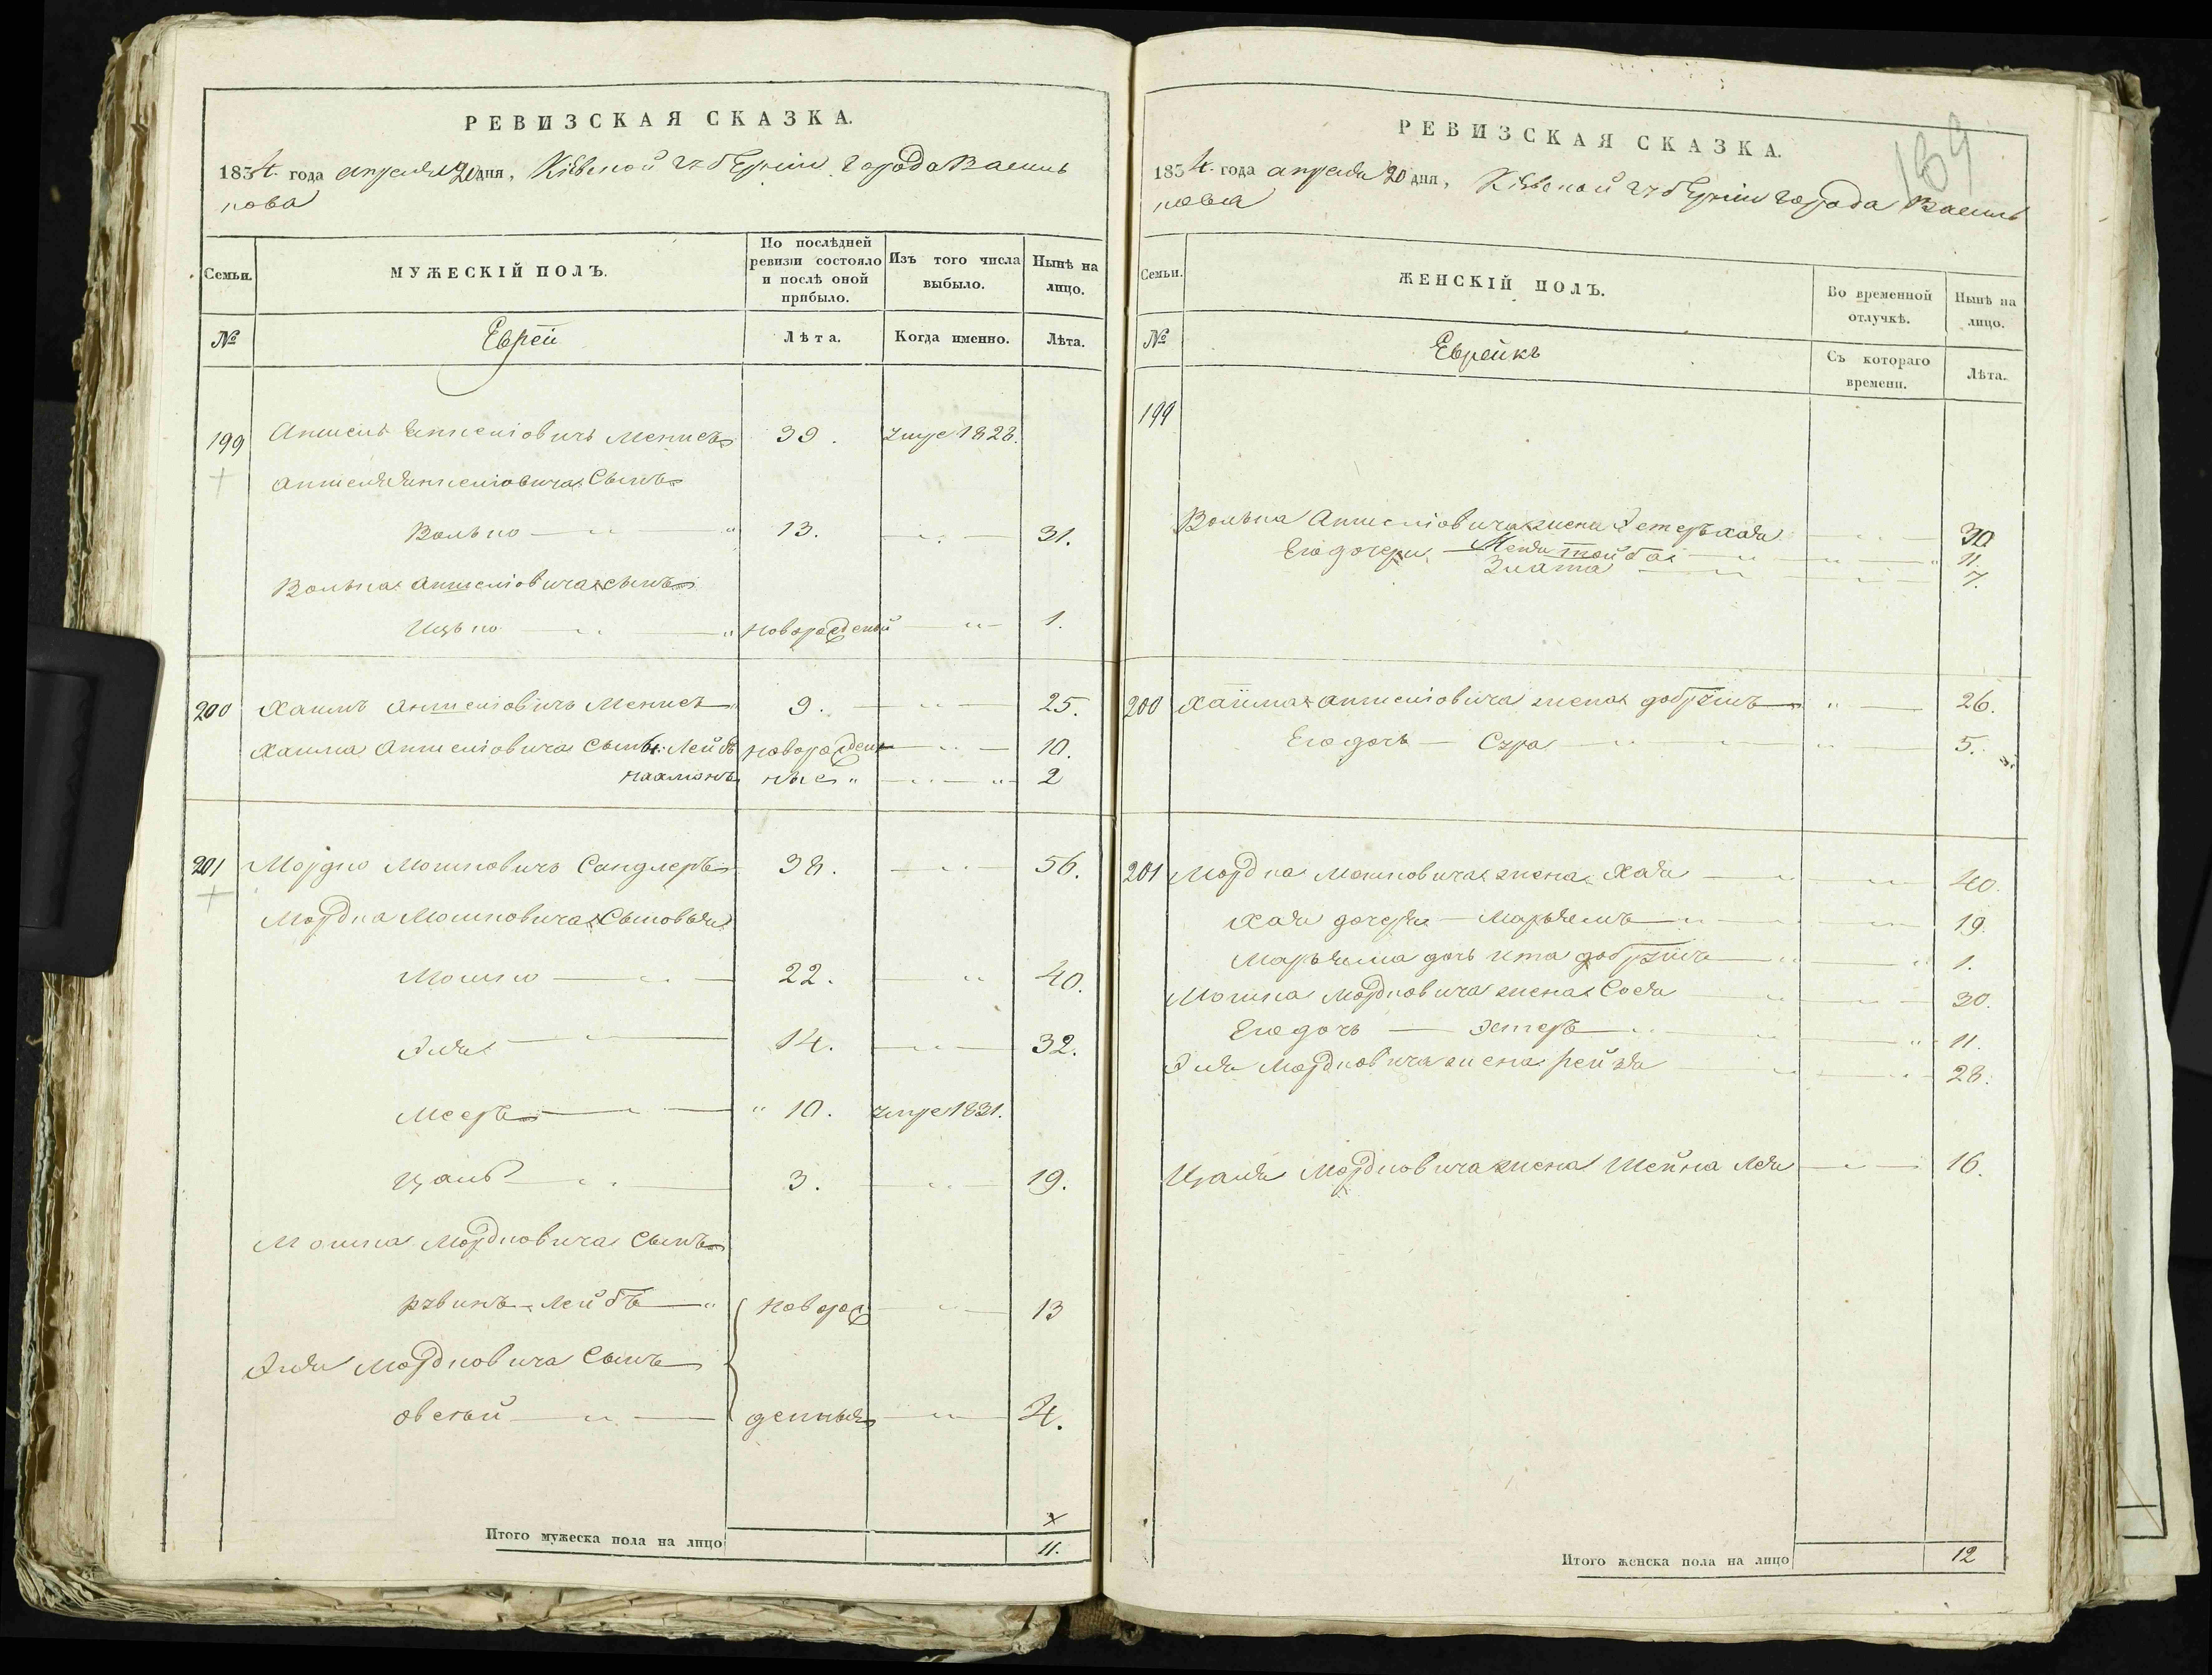 РЕВИЗСКАЯ СКАЗКА.
1834. года апреля 20 дня, Кіевской губерніи города Василь
кова
Семьи.
МУЖЕСКІЙ ПОЛЪ.
По послѣдней
ревизіи состояло
и послѣ оной
прибыло.
Изъ того числа
выбыло.
Нынѣ на
лицо.
№
Еврей
Лѣта.
Когда именно.
Лѣта.
199 Аншель Аншеліовичъ 39. умре 1828.
Аншеля Аншеліовича Сынъ
Волько 13. 31.
Волька Аншеліовича сынъ
Ицько новорожденый 1.
200 Хаимъ Аншеліовичъ 9. 25.
Хаима Аншеліовича Сыны: Лейбъ новорожден 10.
Нахманъ ные 2
201 Мордко Мошковичъ Сандлеръ 38. 56.
Мордка Мошковича Сыновья
Мошко 22. 40.
Эля 14. 32.
Мееръ 10. умре 1831.
Цаль 3. 19.
Мошка Мордковича Сынъ
рувинъ Лейбъ новорож 13
Эля Мордковича Сынъ
овсей денныя 4.
Итого мужеска пола на лицо 11.
РЕВИЗСКАЯ СКАЗКА.
169
1834. года апреля 20 дня, Кіевской губерніи города Василь
кова
Семьи.
ЖЕНСКІЙ ПОЛЪ.
Во временной
отлучкѣ.
Нынѣ на
лицо.
№
Еврейкъ
Съ котораго
времени.
Лѣта.
199
Волька Аншеліовича жена Эстеръ хая 30
Его дочери тойба 11.
Злата 7.
200 Хаима Аншеліовича жена добрушъ 26.
Его дочь Сура 5.
201 Мордка Мошковича жена Хая 40.
Хаи дочеръ Марьямъ 19.
Марьяма дочь ита добрушъ 1.
Мошка Мордковича жена Сося 30.
Его дочь эстеръ 11.
Эля Мордковича жена рейзя 28.
Цаля Мордковича жена Шейна Лея 16.
Итого женска пола на лицо 12